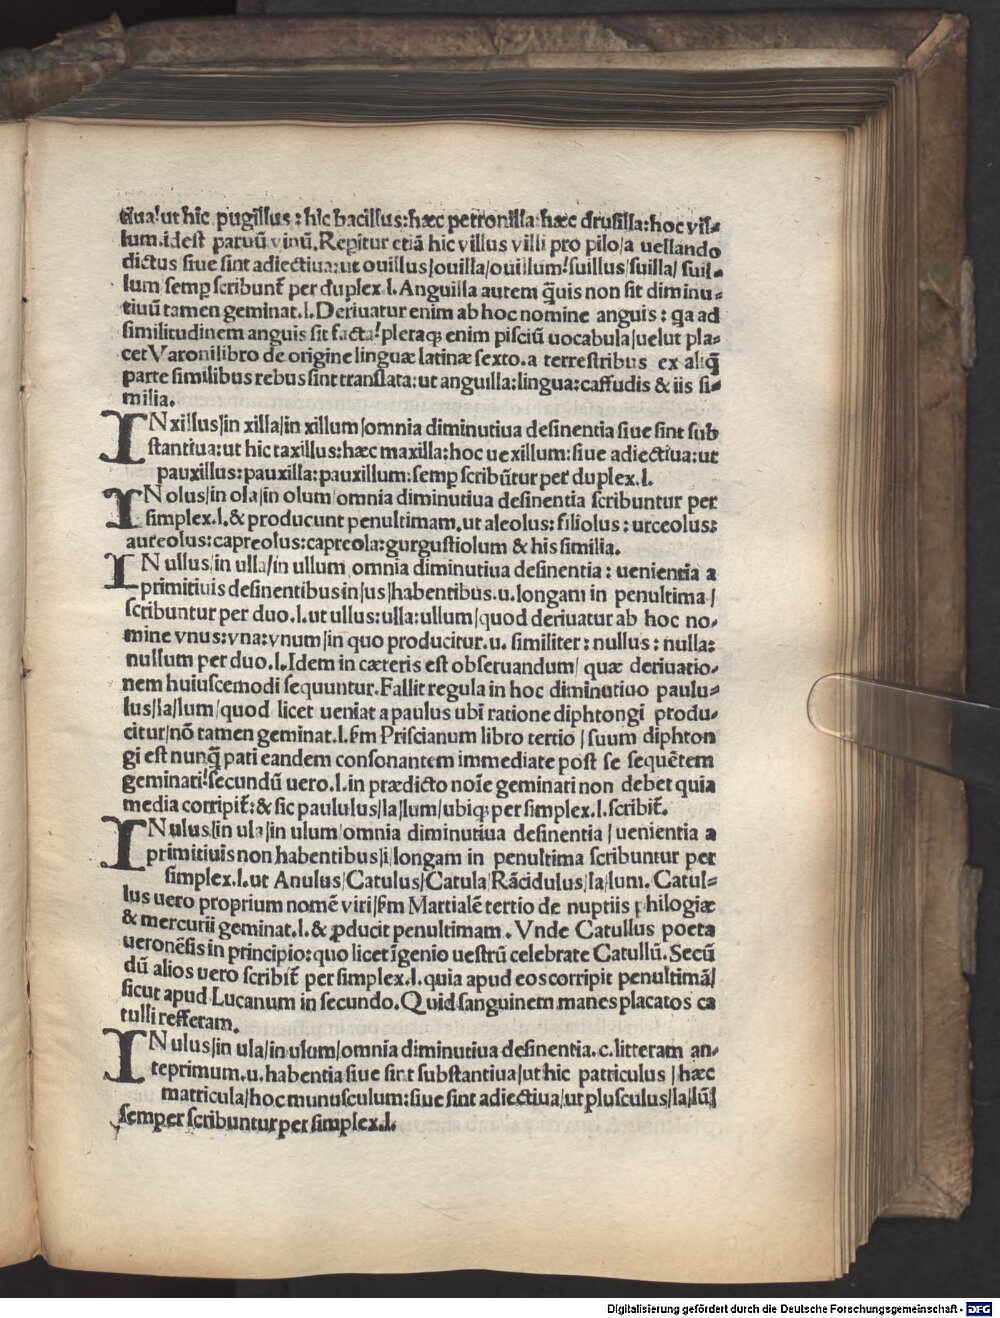 tiua! ut hic pugillus: hic bacillus: hæc petronilla: hæc drusilla: hoc vil-
lum. idest paruū vinū. Repitur etiā hic villus villi pro pilo/a uellando
dictus siue sint adiectiua: ut ouillus/ouilla/ouillum! suillus/suilla/ suil-
lum semp scribunt᷑ per duplex l. Anguilla autem q̄uis non sit diminu-
tiuū tamen geminat. l. Deriuatur enim ab hoc nomine anguis: qa ad
similitudinem anguis sit facta! pleraq; enim pisciū uocabula/uelut pla-
cet Varoni libro de origine linguæ latinæ sexto. a terrestribus ex aliq̄
parte similibus rebus sint translata: ut anguilla: lingua: caffudis & iis si-
milia.
IN xillus/in xilla/in xillum/omnia diminutiua desinentia siue sint sub
stantiua: ut hic taxillus: hæc maxilla: hoc uexillum: siue adiectiua: ut
pauxillus: pauxilla: pauxillum: semp scribūtur per duplex. l.
IN olus/in ola/in olum/omnia diminutiua desinentia scribuntur per
simplex. l. & producunt penultimam. ut aleolus: filiolus: urceolus:
aureolus: capreolus: capreola: gurgustiolum & his similia.
IN ullus/in ulla/in ullum omnia diminutiua desinentia: uenientia a
primitiuis desinentibus in/us/habentibus. u. longam in penultima/
scribuntur per duo. l. ut ullus: ulla: ullum/quod deriuatur ab hoc no-
mine vnus: vna: vnum/in quo producitur. u. similiter: nullus: nulla:
nullum per duo. l. Idem in cæteris est obseruandum/ quæ deriuatio-
nem huiuscemodi sequuntur. Fallit regula in hoc diminutiuo paulu-
lus/la/lum/quod licet ueniat a paulus ubi ratione diphtongi produ-
citur/nō tamen geminat. l. s̄m Priscianum libro tertio/suum diphton
gi est nunq̄ pati eandem consonantem immediate post se sequētem
geminari! secundū uero. l. in prædicto noīe geminari non debet quia
media corripit᷑: & sic paululus/la/lum/ubiq; per simplex. l. scribit᷑.
IN ulus/in ula/in ulum/omnia diminutiua desinentia/uenientia a
primitiuis non habentibus/i/longam in penultima scribuntur per
simplex. l. ut Anulus/Catulus/Catula/Rācidulus/la/lum. Catul-
lus uero proprium nomē viri/s̄m Martialē tertio de nuptiis philogiæ
& mercurii geminat. l. & ꝓducit penultimam. Vnde Catullus poeta
ueronēsis in principio: quo licet īgenio uestrū celebrate Catullū. Secū
dū alios uero scribit᷑ per simplex. l. quia apud eos corripit penultimā/
sicut apud Lucanum in secundo. Quid sanguinem manes placatos ca
tulli refferam.
IN ulus/in ula/in ulum/omnia diminutiua desinentia. c. litteram an-
teprimum. u. habentia siue sint substantiua/ut hic patriculus/hæc
matricula/hoc munusculum: siue sint adiectiua/ut plusculus/la/lū/
semper scribuntur per simplex. l.
Digitalisierung gefördert durch die Deutsche Forschungsgemeinschaft - DFG